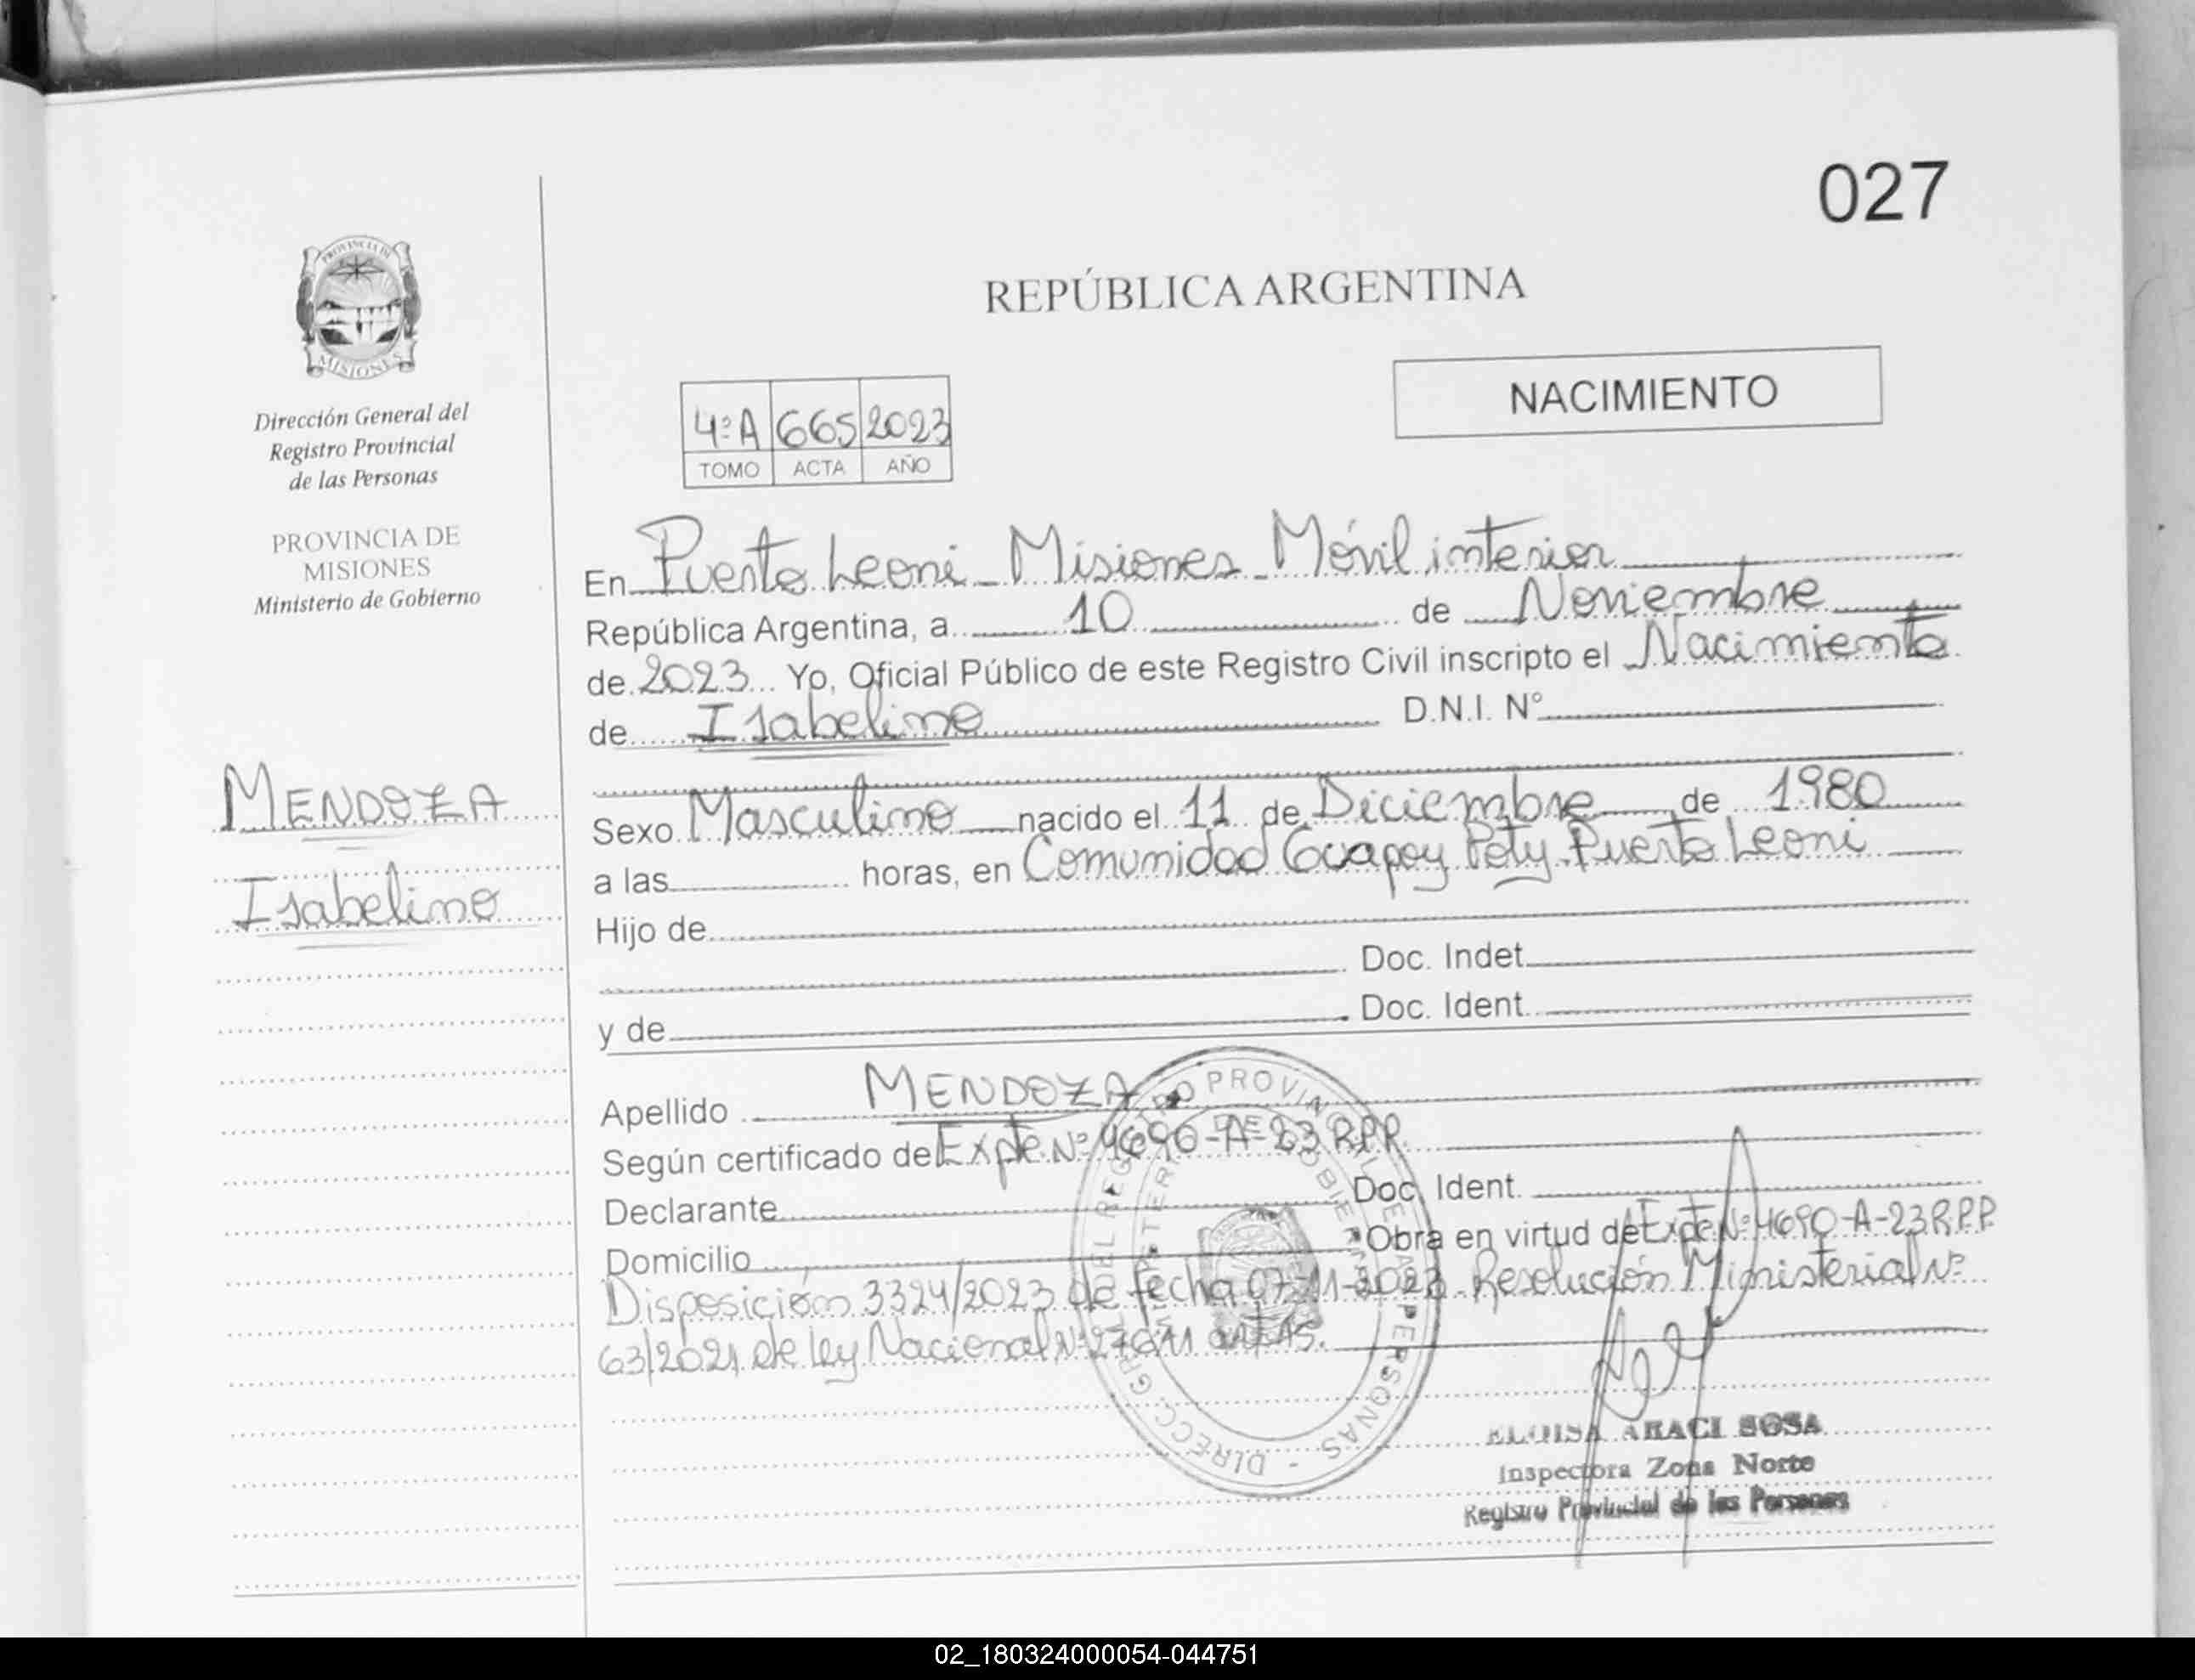 027
PROVINCIA DE
MISIONES
Dirección General del
Registro Provincial
de las Personas
PROVINCIA DE
MISIONES
Ministerio de Gobierno
MENDOZA
Isabelino
REPÚBLICA ARGENTINA
NACIMIENTO
4ºA 665 2023
TOMO ACTA AÑO
En Puerto Leoni - Misiones - Móvil interior
República Argentina, a 10 de Noviembre
de 2023 Yo, Oficial Público de este Registro Civil inscripto el Nacimiento
de Isabelino D.N.I. Nº
Sexo Masculino nacido el 11 de Diciembre de 1980
a las horas, en Comunidad Guapoy Poty Puerto Leoni
Hijo de
Doc. Indet.
y de Doc. Ident.
Apellido MENDOZA
Según certificado de Expte. Nº 4690-A-23 R.P.P.
Declarante Doc. Ident.
Domicilio Obra en virtud de Expte Nº 4690-A-23 R.P.P.
Disposición 3324/2023 de fecha 07-11-2023. Resolución Ministerial Nº
63/2021 de ley Nacional Nº 27611 15.
DIRECC. GRAL. DEL REGISTRO PROVINCIAL DE LAS PERSONAS -
MINISTERIO DE GOBIERNO
ELOISA ARACI SOSA
Inspectora Zona Norte
Registro Provincial de las Personas
02_180324000054-044751